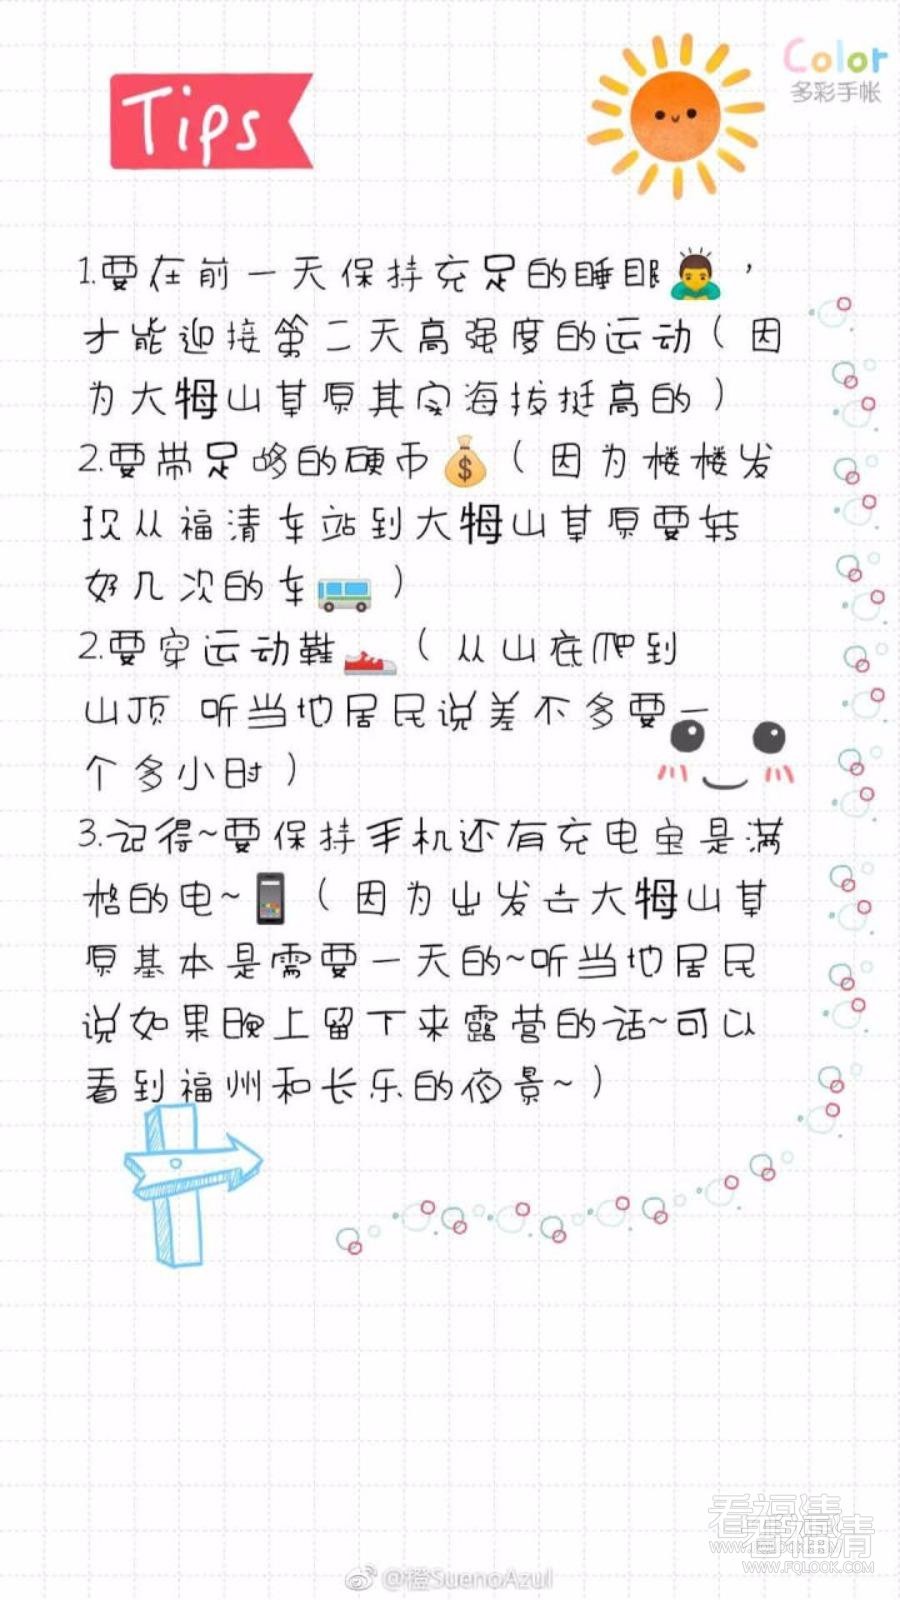 Color
多彩手帐
Tips
1.要在前一天保持充足的睡眠🙇‍♂️，
才能迎接第二天高强度的运动（因
为大姆山草原其实海拔挺高的）
2.要带足够的硬币💰（因为楼楼发
现从福清车站到大姆山草原要转
好几次的车🚌）
2.要穿运动鞋👟（从山底爬到
山顶 听当地居民说差不多要一
个多小时）
3.记得~要保持手机还有充电宝是满
格的电~📱（因为出发去大姆山草
原基本是需要一天的~听当地居民
说如果晚上留下来露营的话~可以
看到福州和长乐的夜景~）
看福清
看福清
WWW.FQLOOK.COM
@橙SuenoAzul